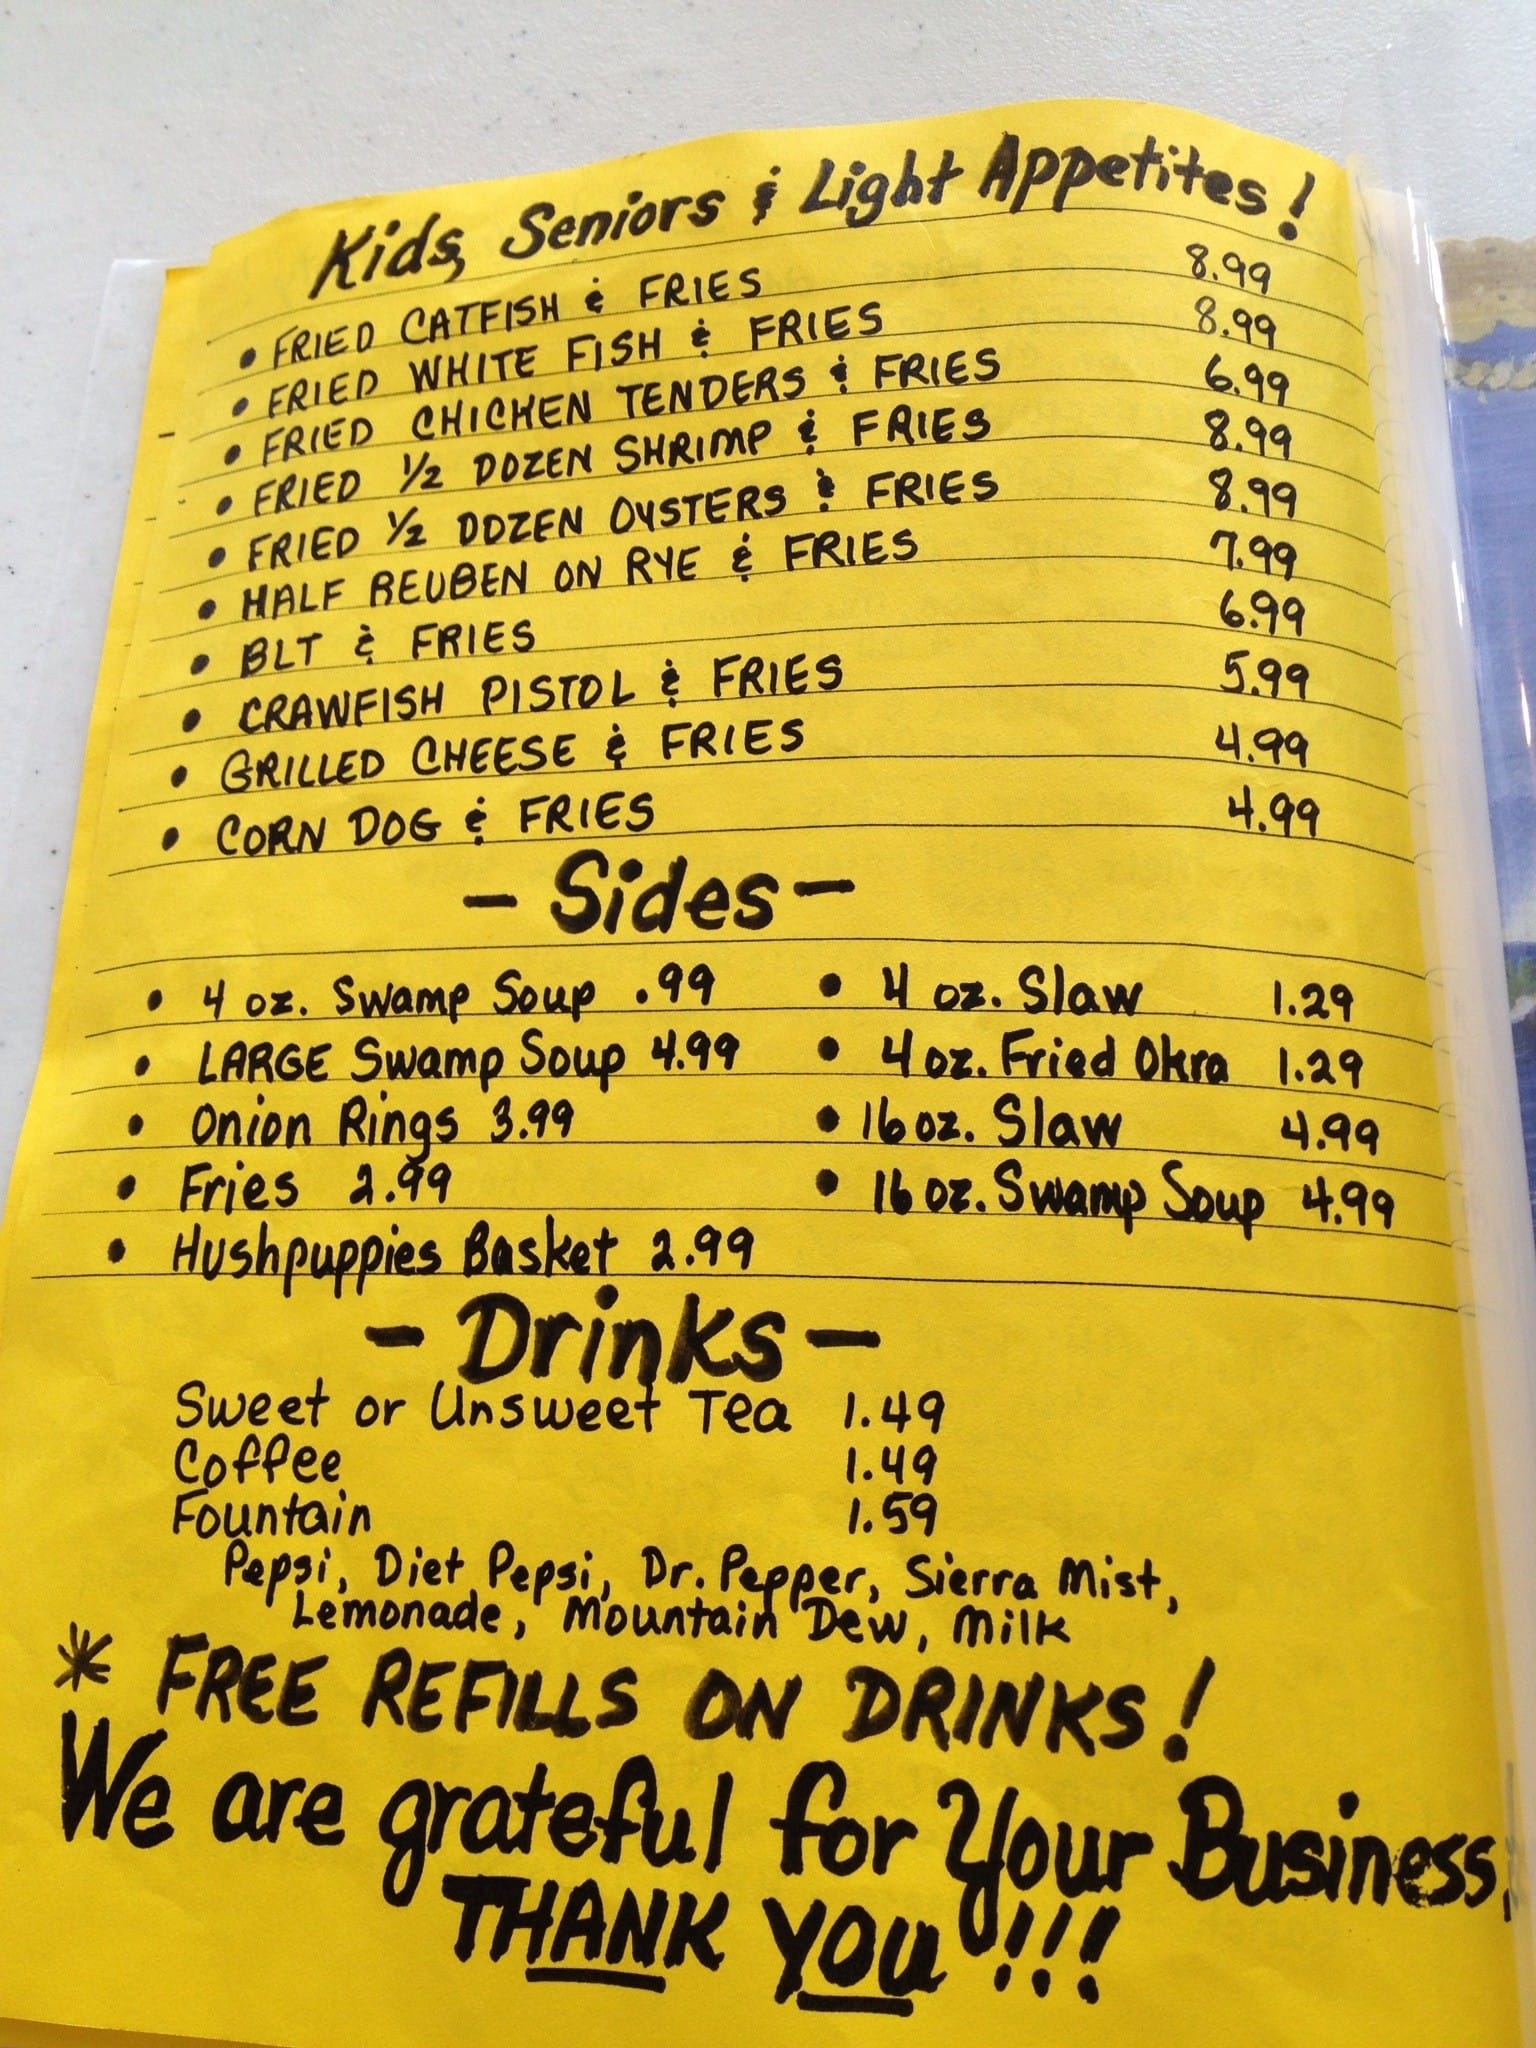 Kids, Seniors & Light Appetites!
• FRIED CATFISH & FRIES 8.99
• FRIED WHITE FISH & FRIES 8.99
• FRIED CHICKEN TENDERS & FRIES 6.99
• FRIED 1/2 DOZEN SHRIMP & FRIES 8.99
• FRIED 1/2 DOZEN OYSTERS & FRIES 8.99
• HALF REUBEN ON RYE & FRIES 7.99
• BLT & FRIES 6.99
• CRAWFISH PISTOL & FRIES 5.99
• GRILLED CHEESE & FRIES 4.99
• CORN DOG & FRIES 4.99
- Sides -
• 4 oz. Swamp Soup .99 • 4 oz. Slaw 1.29
• LARGE Swamp Soup 4.99 • 4 oz. Fried Okra 1.29
• Onion Rings 3.99 • 16 oz. Slaw 4.99
• Fries 2.99 • 16 oz. Swamp Soup 4.99
• Hushpuppies Basket 2.99
- Drinks -
Sweet or Unsweet Tea 1.49
Coffee 1.49
Fountain 1.59
Pepsi, Diet Pepsi, Dr. Pepper, Sierra Mist,
Lemonade, Mountain Dew, Milk
* FREE REFILLS ON DRINKS!
We are grateful for Your Business,
THANK YOU!!!